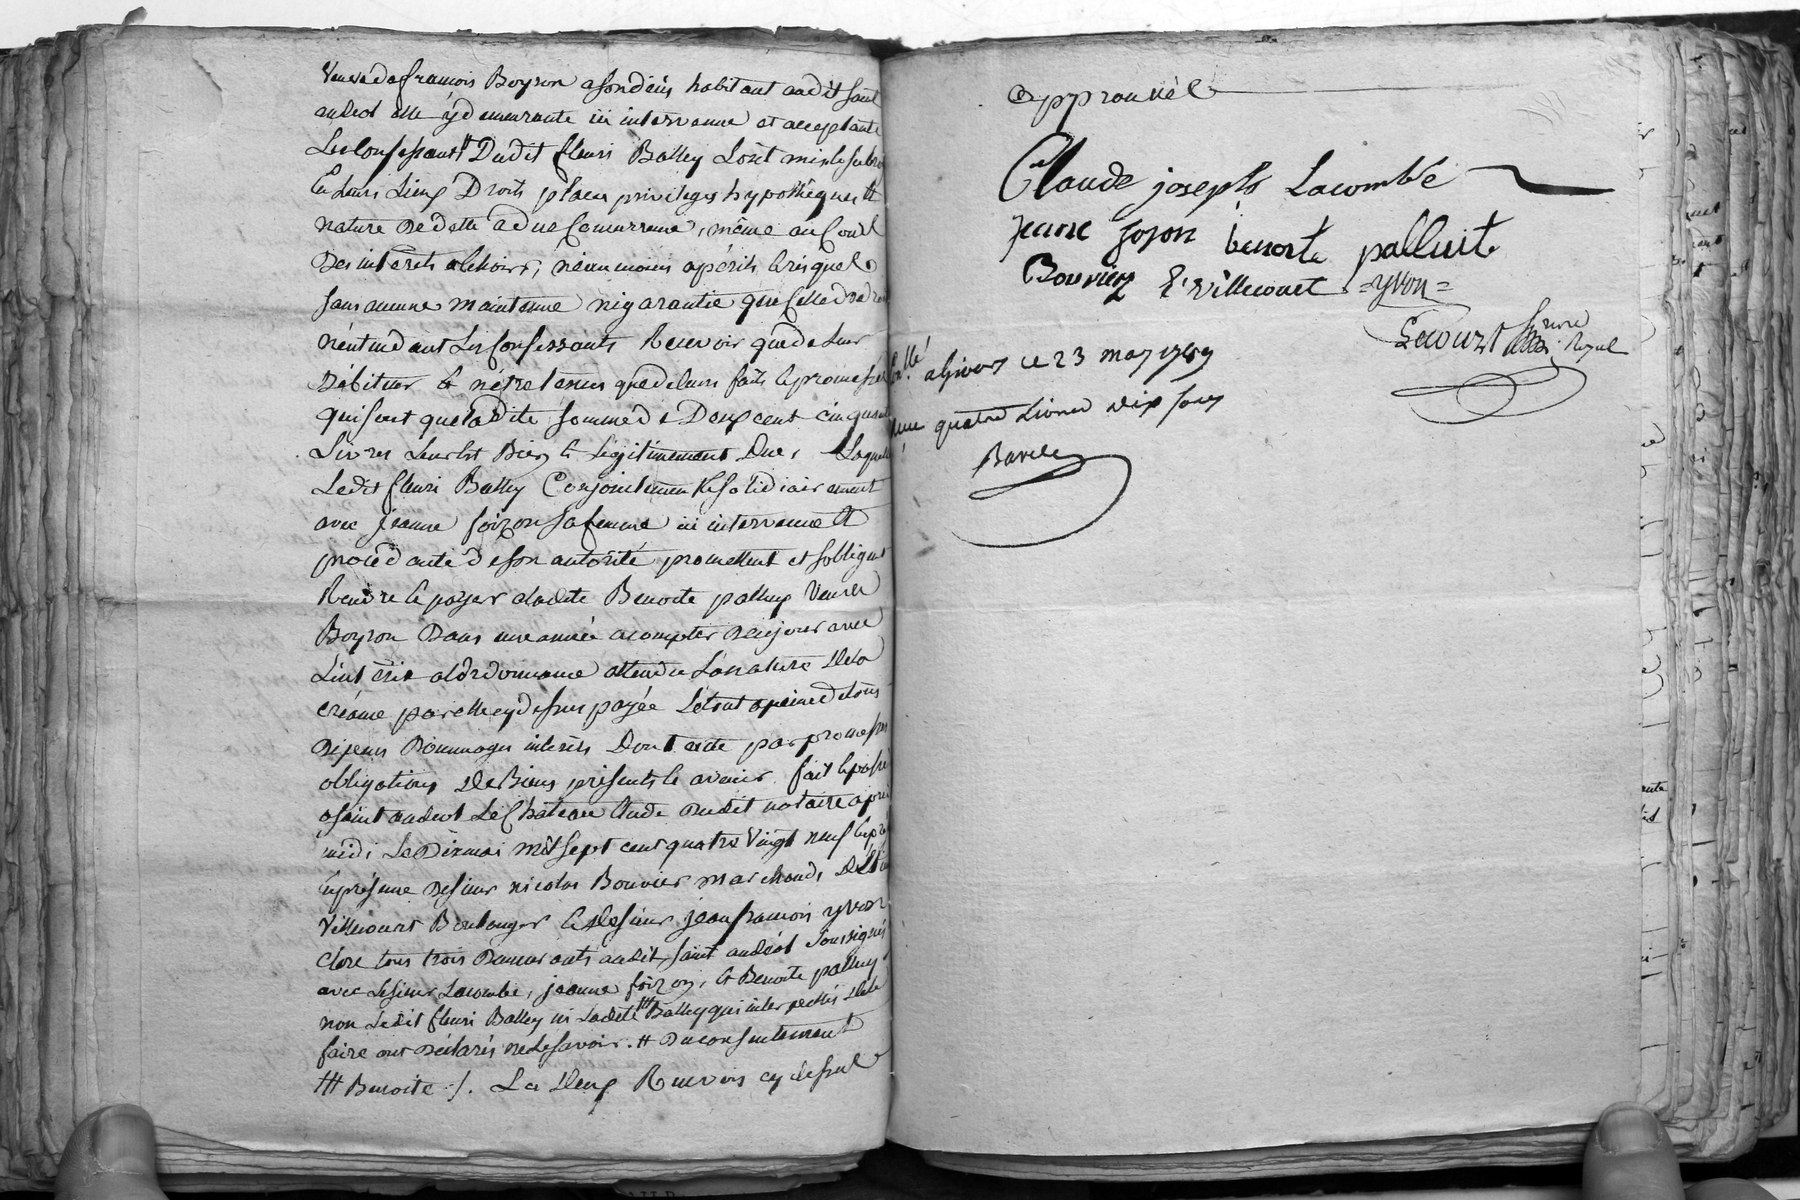 Veuve de francois Boyron a son deüs habitant audit saint
andeol elle y demeurante ici intervenue et acceptante
Les confessants Dudit fleuri Balley
En leurs Lieux Droits places privileges hypothéques et
nature de dette a due Concurrance, même au Cours
des interets alehoirs, néanmoins a périls & risques
sans aucune maintenue ni garantie que Celle de droit
n'entendant Les Confessants Recevoir que de Leur
débiteur & n'être tenus que de leurs faits & promesses
qui sont que ladite somme de Deux cent cinquante
Livres Leur Est Bien & Legitimement Due, Laquelle
Ledit fleuri Balley Conjointement & solidiairement
avec jeanne foizon sa femme ici intervenue et
procédante de son autorité promettent et sobligent
Rendre & payer a ladite Benoite palluy Veuve
Boyron Dans une année a compter de ce jour avec
L'intérêt a l'ordonnance attendu La nature de la
créance par elle cy dessus payée Le tout a peine de tous
dépens dommages intérêts Dont acte par promesses
obligations de Biens présents & avenir fait & passé
a saint andeol Le Château Etude dudit notaire après
midi Le Dix mai mil sept cent quatre vingt neuf
En présence de sieur nicolas Bouvier marchand,
Villecourt Boulanger & de sieur jean francois yvon
clerc tous trois Demeurants audit saint andéol Soussignés
avec Le sieur Lacombe, jeanne foizon, & Benoite palluy
non Ledit fleuri Balley ni Ladite ⧻ Balley qui interpellés de le
faire ont Déclarés ne Le savoir. # Du consentement
⧻ Benoite ·/. Les Deux Renvois cy dessus
approuvés
Claude joseph Lacombe
jeane foyon benoite palluit
Bouvier E. villecourt =yvon=
Lecourt notaire Royal
Con.llé a Givors ce 23 may 1789
Reçu quatre Livres dix sous